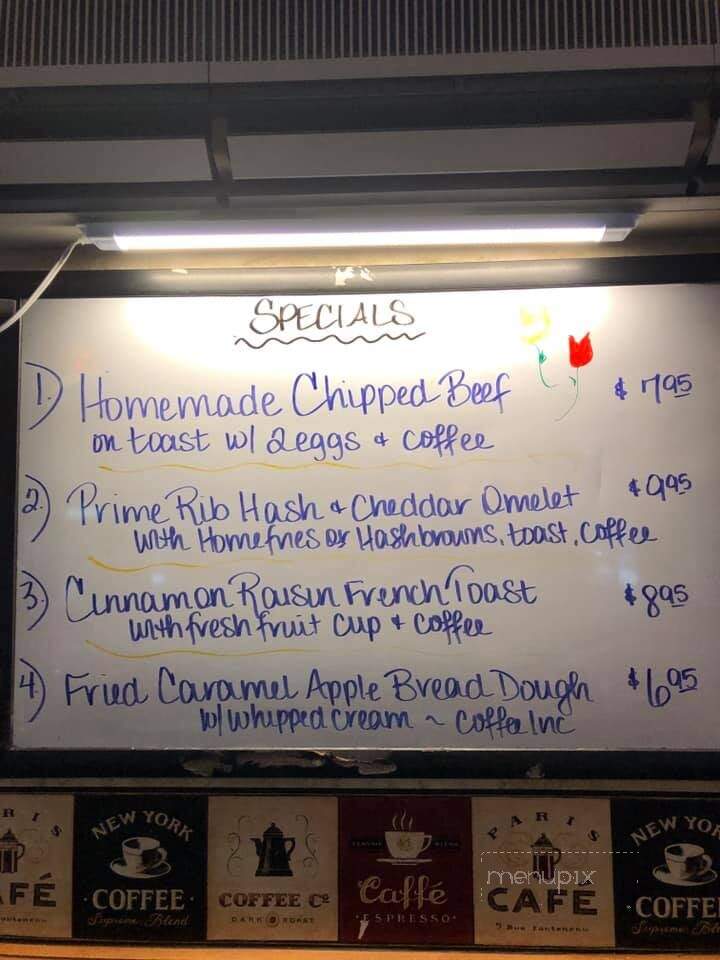 SPECIALS
1.) Homemade Chipped Beef $7.95
on toast w/ 2eggs + coffee
2.) Prime Rib Hash + Cheddar Omelet $9.95
with Homefries or Hashbrowns, toast, coffee
3.) Cinnamon Raisin French Toast $8.95
with fresh fruit cup + coffee
4.) Fried Caramel Apple Bread Dough $6.95
w/ whipped cream ~ coffee Inc
RIS
AFÉ
NEW YORK
COFFEE
Supreme Blend
COFFEE Co
DARK ROAST
CLASSIC BLEND
Caffé
ESPRESSO
PARIS
CAFÉ
menupix
NEW YO
COFFE
Supreme Ble